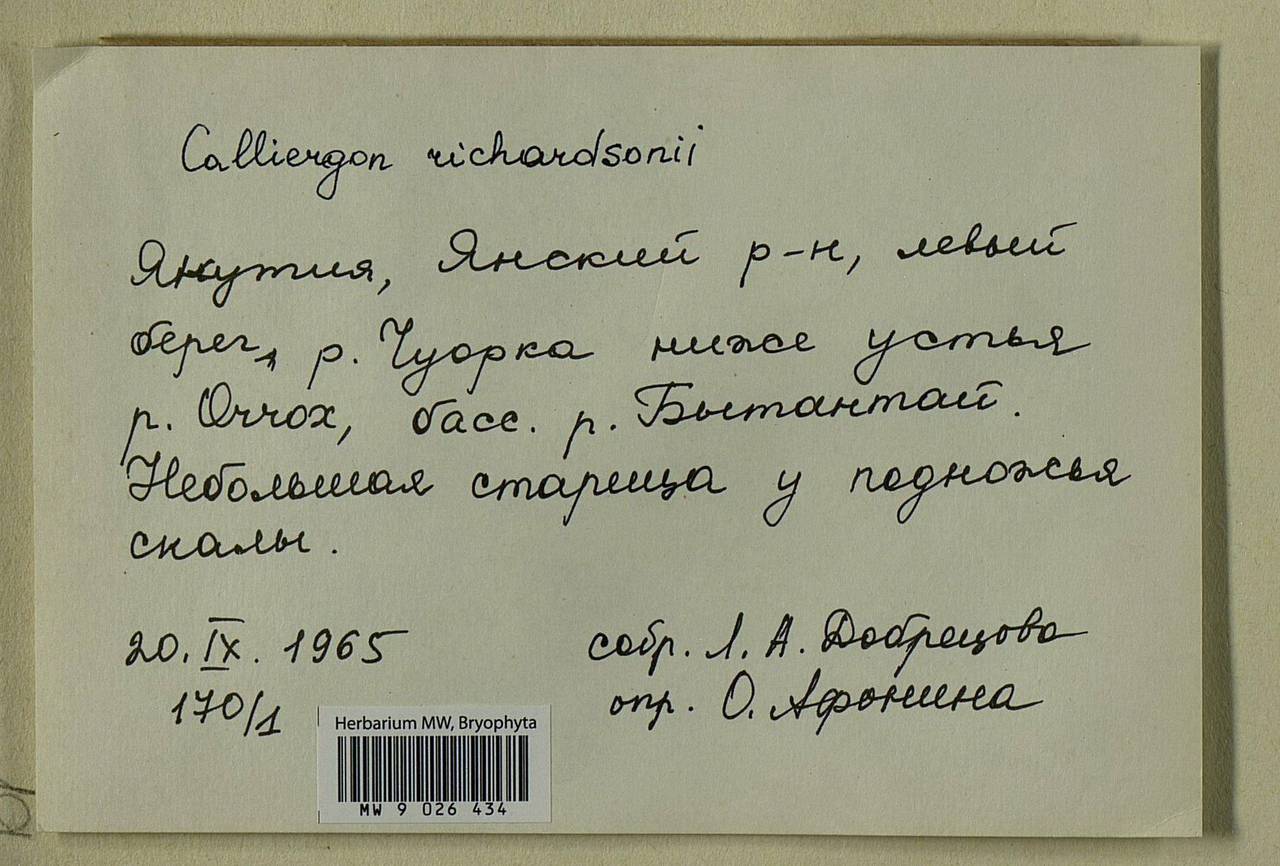 Calliergon richardsonii
Якутия, Янский р-н, левый
берег, р. Чуорка ниже устья
р. Оччох, басс. р. Бытантай.
Небольшая старица у подножья
скалы.
20. IX. 1965
собр. Л. А. Добрецова
170/1
опр. О. Афонина
Herbarium MW, Bryophyta
MW 9 026 434